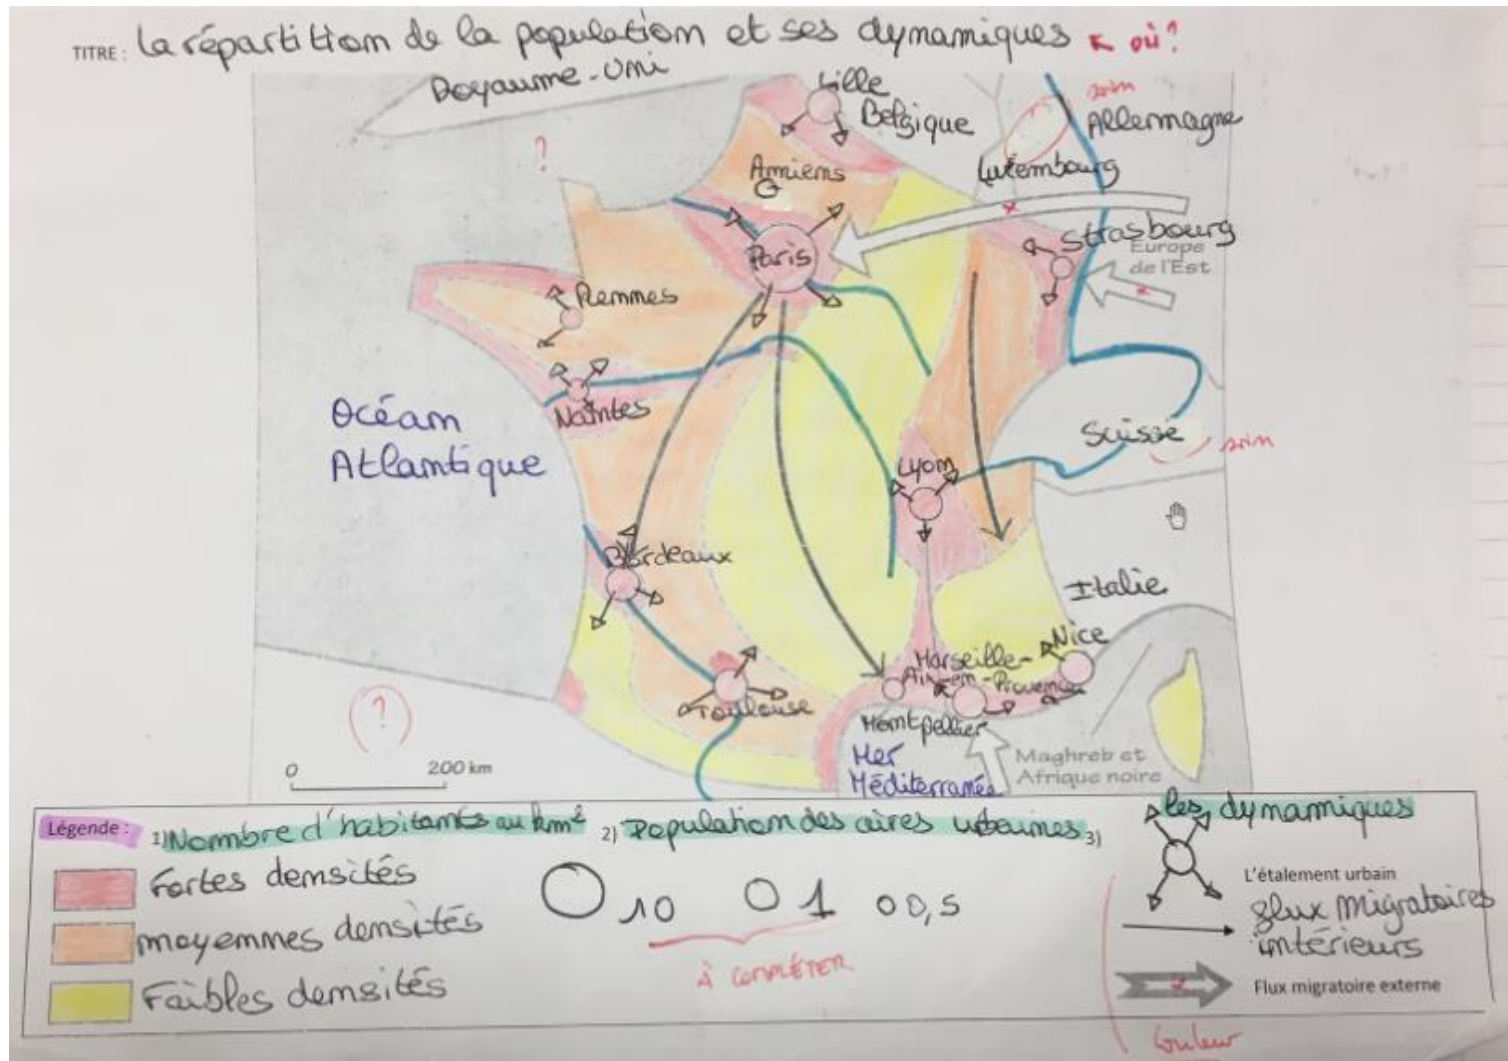 TITRE : La répartition de la population et ses dynamiques ↖ où ?
Royaume-Uni
Lille
Belgique
soin
Allermagne
?
Amiens
Luxembourg
Strasbourg
Europe
de l'Est
Paris
Rennes
Nantes
Océan
Atlantique
Suisse
soin
Lyon
Bordeaux
Italie
Nice
Marseille-
Aix-en-Provence
Toulouse
Montpellier
?
Mer
Méditerranée
Maghreb et
Afrique noire
0 200 km
Légende :
1) Nombre d'habitants au km²
Fortes densités
moyennes densités
Faibles densités
2) Population des aires urbaines
10 1 0,5
À COMPLÉTER
3) les dynamiques
L'étalement urbain
flux migratoires
intérieurs
Flux migratoire externe
Couleur